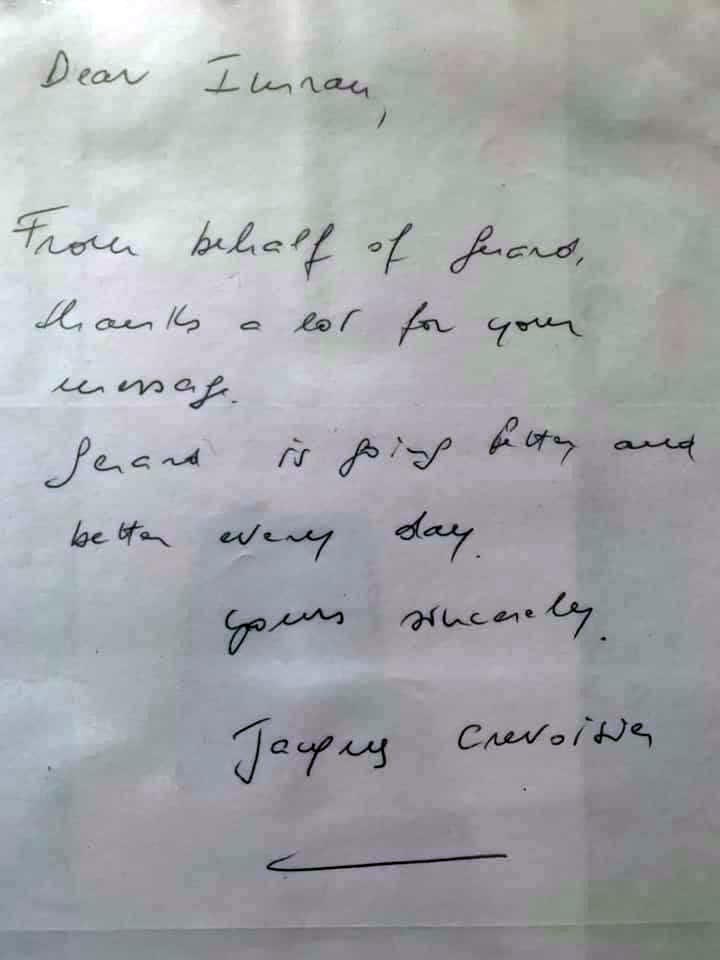 Dear Imran,
From behalf of Gerard,
thanks a lot for your
message.
Gerard is going better and
better every day.
Yours sincerely.
Jacques Crevoisier